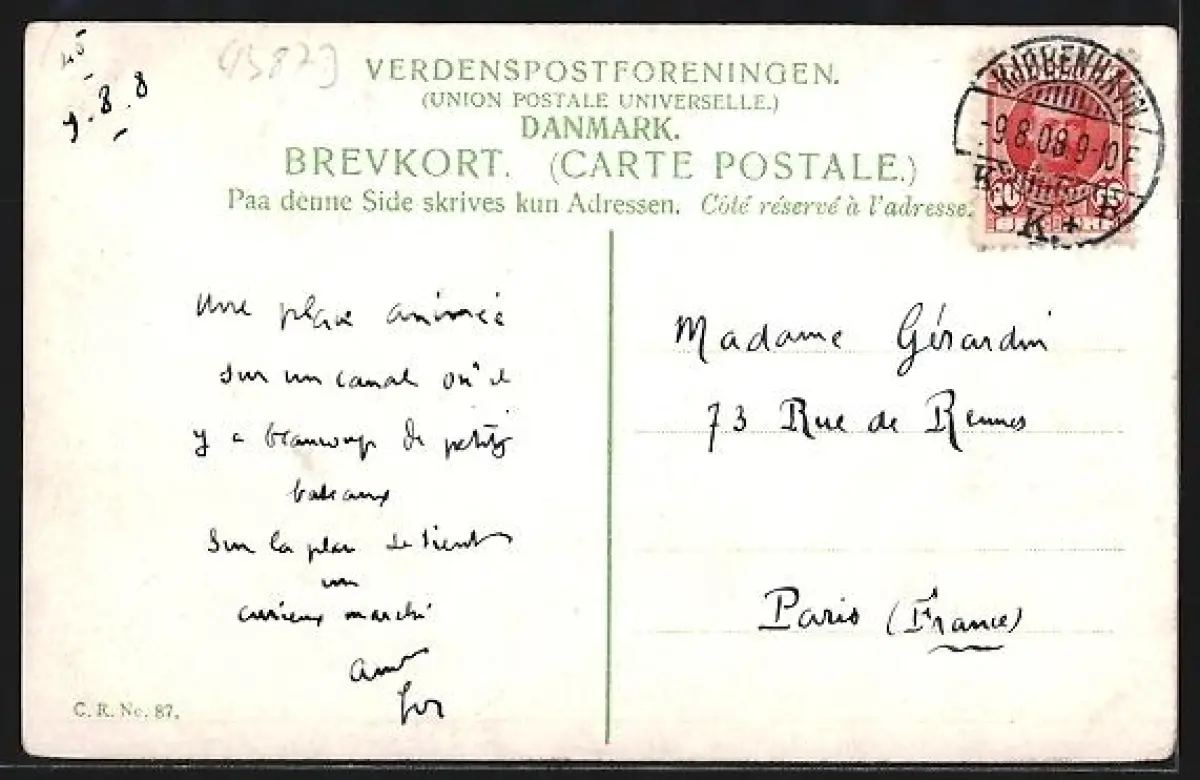 45
9.8.8
45823
VERDENSPOSTFORENINGEN.
(UNION POSTALE UNIVERSELLE.)
DANMARK.
BREVKORT. (CARTE POSTALE.)
Paa denne Side skrives kun Adressen. Côté réservé à l'adresse.
KJØBENHAVN
-9.8.08 9-10 F
K. B
10
Une place animée
sur un canal où il
y a beaucoup de petits
bateaux
Sur la place se tient
un
curieux marché
Madame Gérardin
73 Rue de Rennes
Paris (France)
C. R. No. 87.